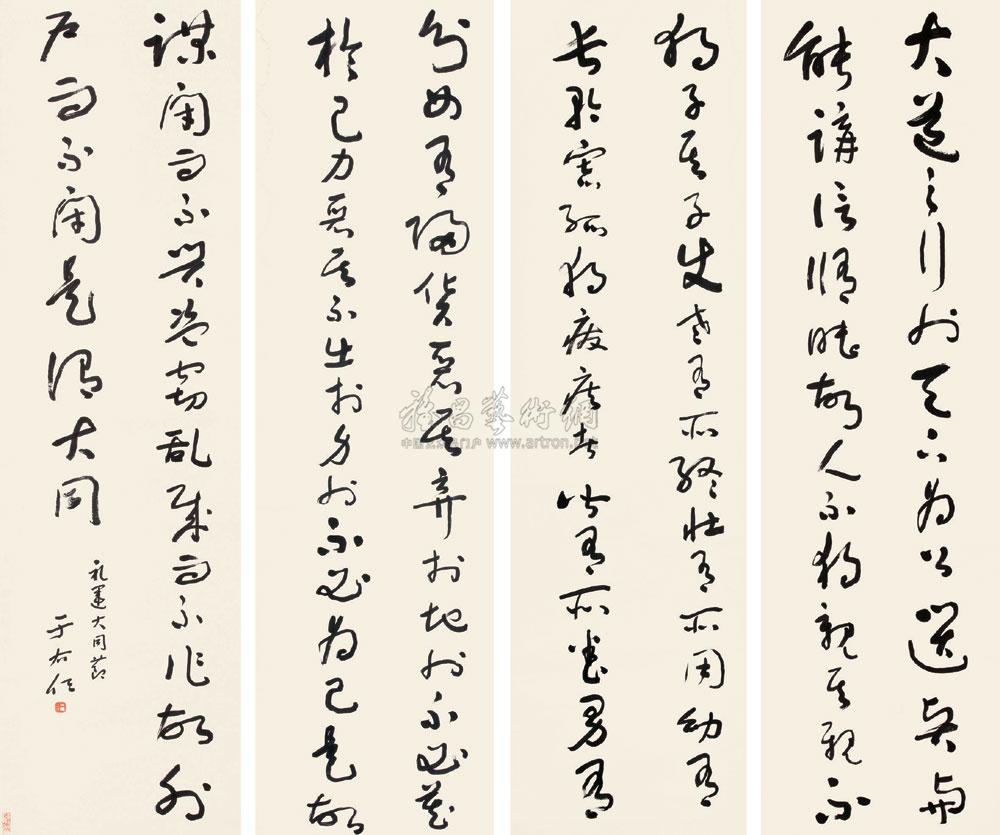 大道之行也天下為公選賢與
能講信脩睦故人不獨親其親不
獨子其子使老有所終壯有所用幼有
長矜寡孤獨廢疾者皆有所養男有
分女有歸貨惡其棄於地也不必藏
於己力惡其不出於身也不必為己是故
謀閉而不興盜竊亂賊而不作故外
戶而不閉是謂大同
礼運大同節
于右任
雅昌藝術網
www.artron.net